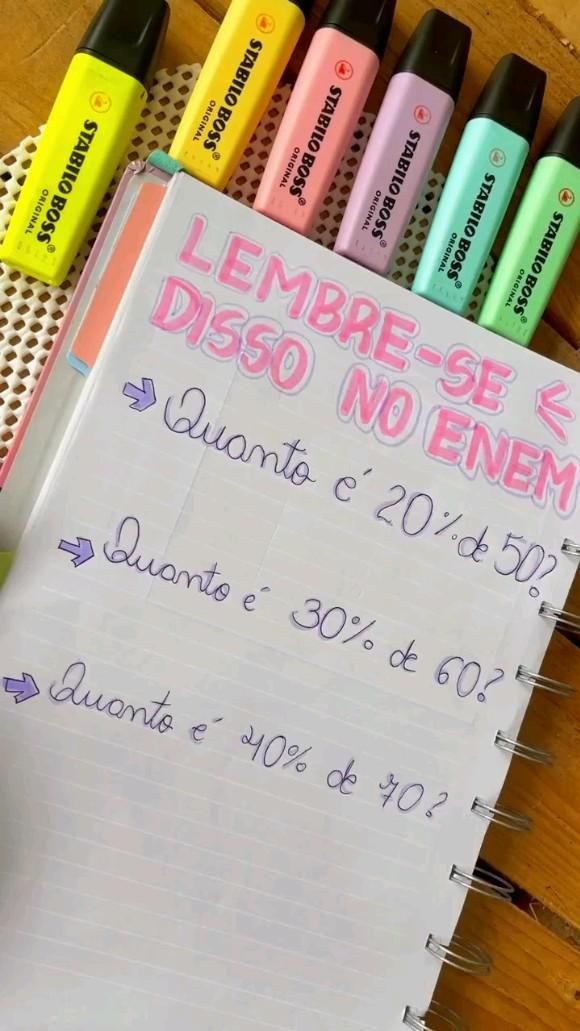 STABILO BOSS® ORIGINAL
STABILO BOSS® ORIGINAL
STABILO BOSS® ORIGINAL
STABILO BOSS® ORIGINAL
STABILO BOSS® ORIGINAL
STABILO BOSS® ORIGINAL
LEMBRE-SE
DISSO NO ENEM
Quanto é 20% de 50?
Quanto é 30% de 60?
Quanto é 40% de 70?